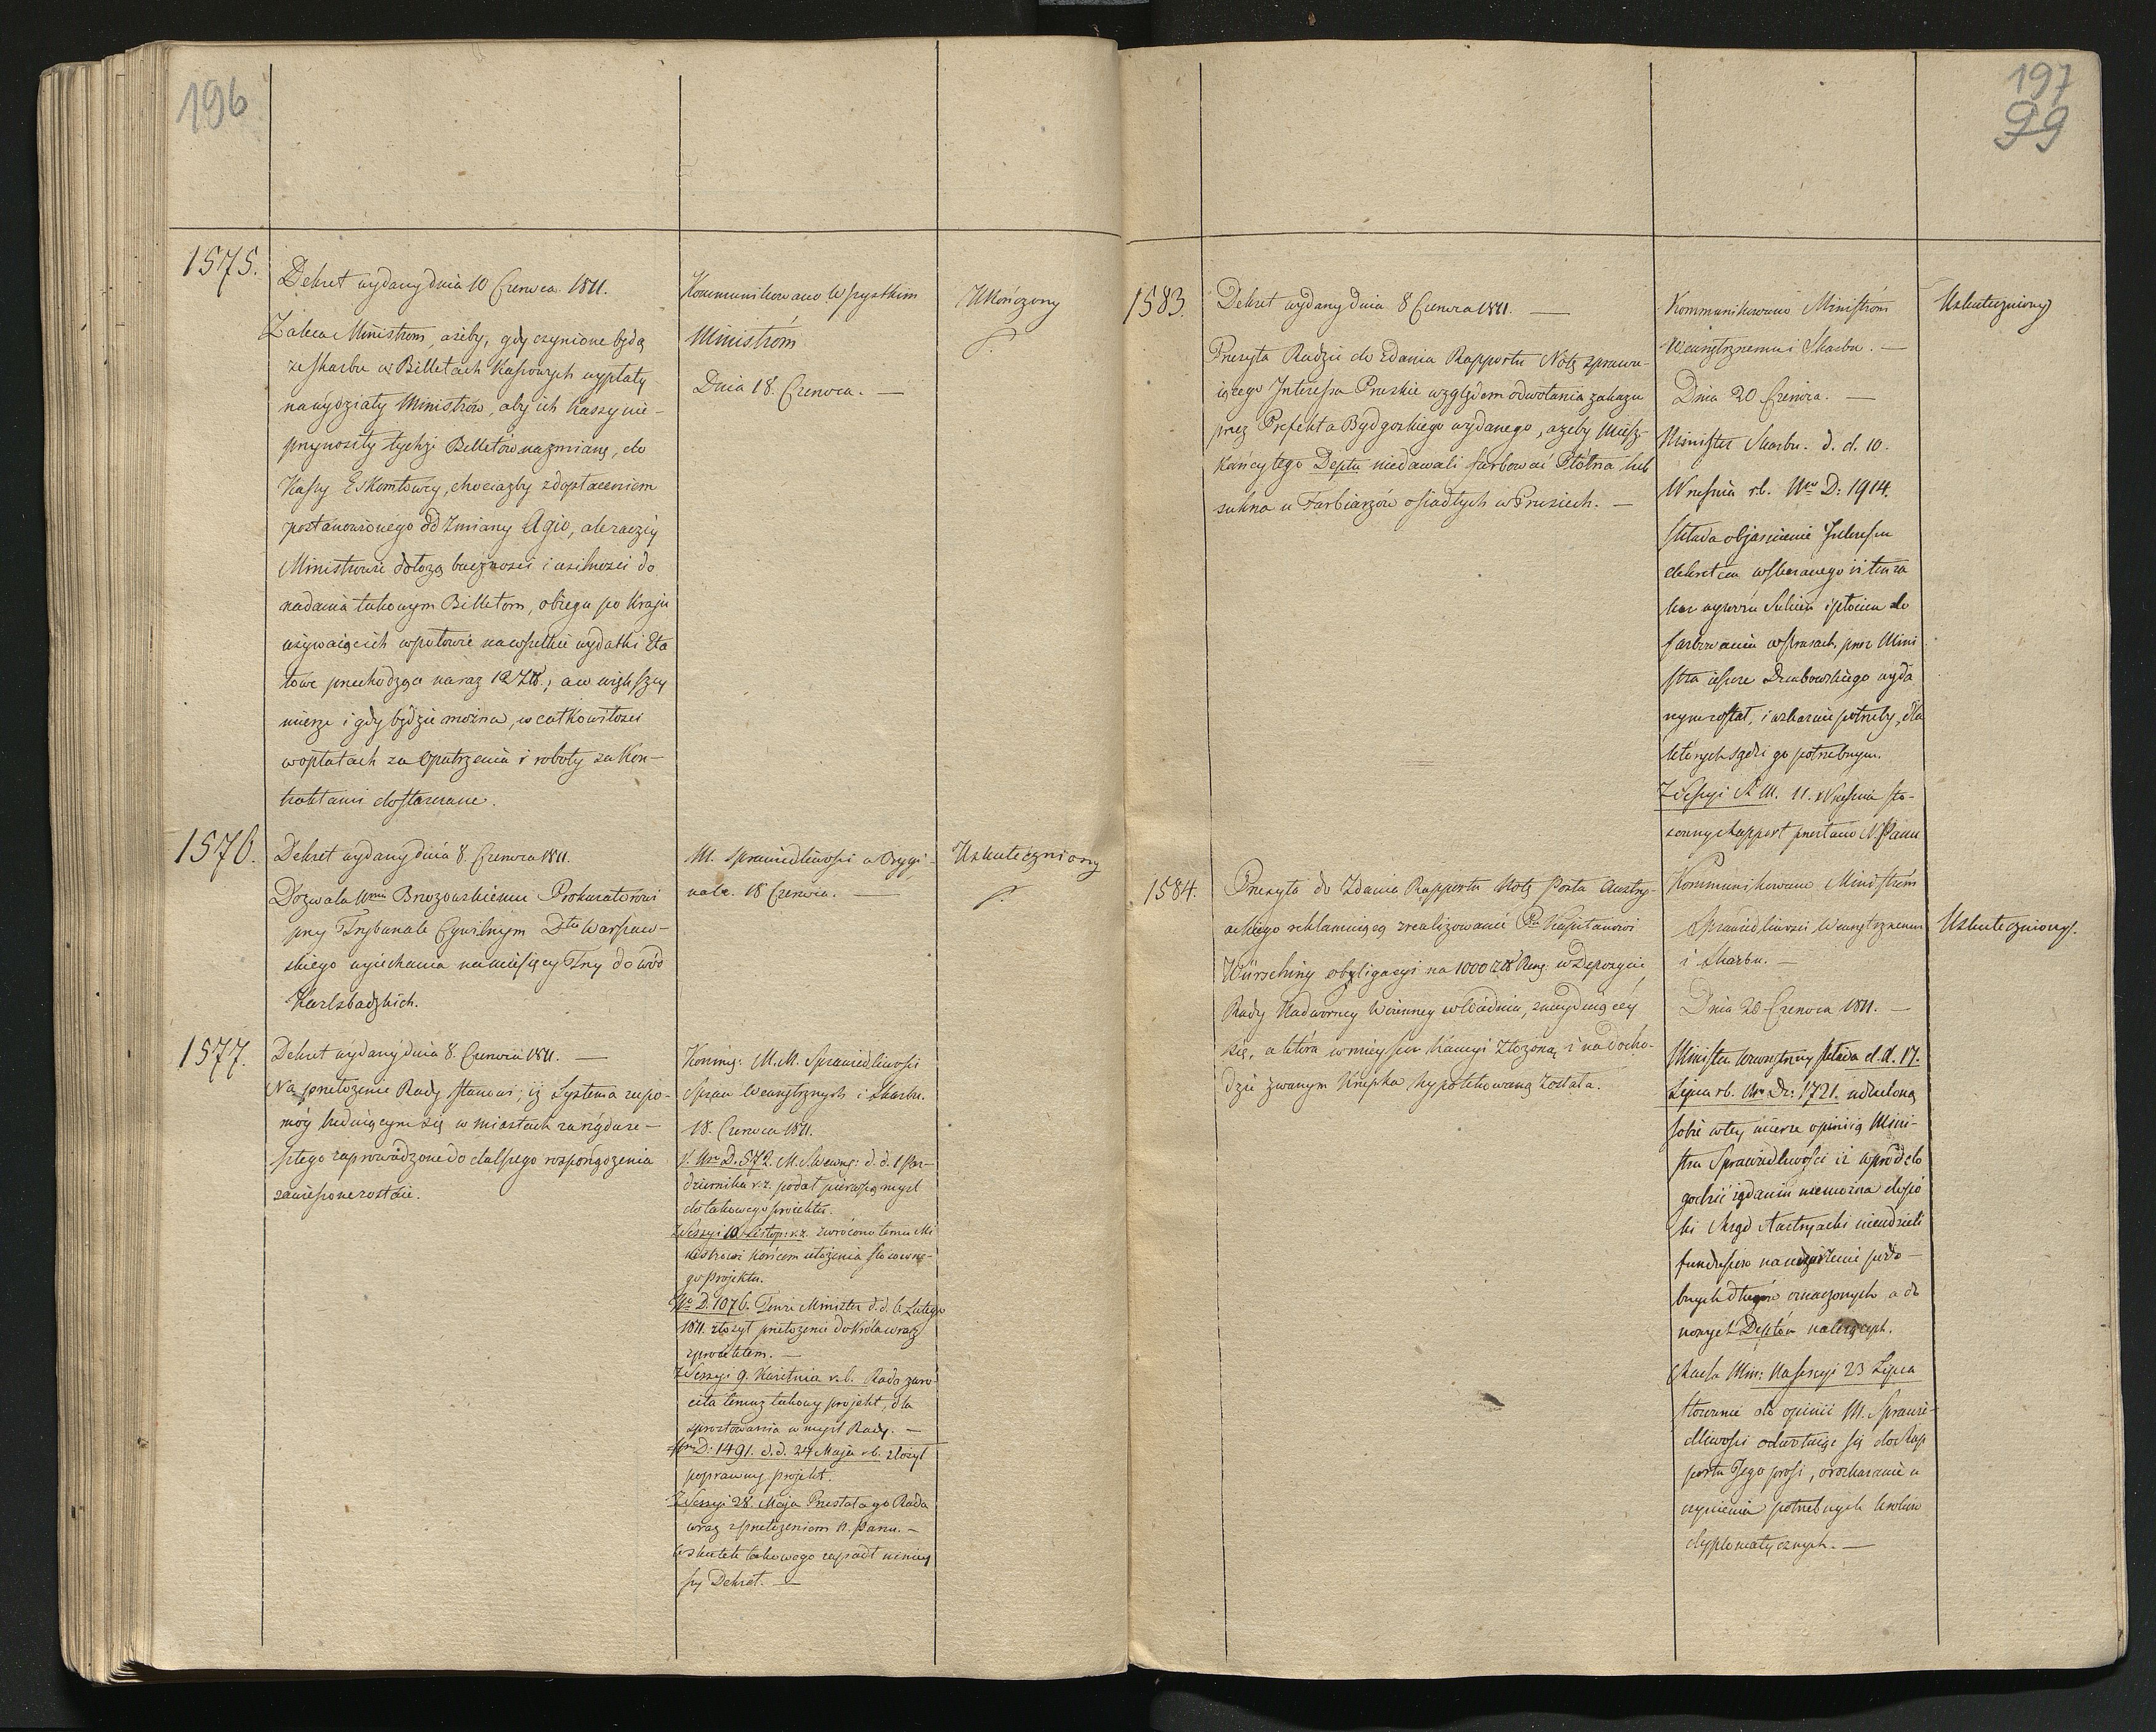 196
1575.
Dekret wydany dnia 10 Czerwca 1811.
Zaleca Ministrom, ażeby, gdy czynione będą
ze skarbu w Billetach Kassowych wypłaty
na wydziały Ministrów, aby ich Kassy nie-
przynosiły tychże Billetów na zmianę, do
Kassy Eskomtowey, chociażby z dopłaceniem
postanowionego od zmiany Agio, ale raczéy
Ministrowie dołożą baczności i usilności do
nadania takowym Billetom, obiegu po Kraju
używaiąc ich w połowie na wszelkie wydatki Eta
towe przechodzące na raz 12 Złł.; a w większey
mierze i gdy będzie można, w całkowitości
w opłatach za Opatrzenia i roboty za Kon-
traktami dostarczane.
Kommunikowano Wszystkim
Ministróm
Dnia 18. Czerwca. —
Ukończony
1576.
Dekret wydany dnia 8. Czerwca 1811.
Dozwala Brzozowskiemu Prokuratorowi
przy Trybunale Cywilnym Dtu Warszaw-
skiego wyiechania na miesięcy Trzy do wód
Karlsbadzkich.
M. Sprawiedliwości w Orygi-
nale. 18 Czerwca. —
Uskuteczniony
1577.
Dekret wydany dnia 8. Czerwca 1811. —
Na przełożenie Rady stanowi; iż Systema zapo-
móg buduiącym się w miastach
sztego zaprowadzone do dalszego rozporządzenia
zawieszone zostaie.
Kommig: M.M. Sprawiedliwości
Spraw Wewnętrznych i Skarbu.
18. Czerwca 1811.
V. Nro D. 572. M. S. Wewng: d. d. 1 Paz-
dziernika r. z. podał pierwszą mysl
do takowego projektu.
Z Sessyi 10 Listop: r. z. zwrócono temu Mi
nistrowi końcem ułożenia stosowne-
go Projektu.
Nro D. 1076. Tenże Minister d. d. 6 Lutego
1811. złożył przełożenie do Króla wraz
z projektem. —
Z Sessyi 9. Kwietnia r. b. Rada zwró-
ciła temuz takowy projekt, dla
sprostowania w mysl Rady. —
Nro D: 1491. d. d. 24 Maja r b. złożył
poprawny projekt.
Z Sessyi 28. Maja Przesłała go Rada
wraz z przełożeniem N. Panu. —
W skutek takowego zapadł niniey
szy Dekret. —
197
99
1583.
Dekret wydany dnia 8 Czerwca 1811. —
Przesyła Radzie do zdania Rapportu Notę sprawu-
iącego Interessa Pruskie względem odwołania zakazu
przez Prefekta Bydgoskiego wydanego, ażeby Miesz-
kańcy tego Deptu niedawali farbować Płótna lub
sukna u Farbiarzów osiadłych w Prusiech. —
Kommunikowano Ministróm
Wewnętrznemu i Skarbu. —
Dnia 20 Czerwca. —
Minister Skarbu. d. d. 10.
Września rb. Nro D: 1914.
składa objaśnienie Interessu
dekretem wskazanego iż ten za
kaz wywozu Sukien i płócien do
farbowania w Prusach, przez Mini
stra ieszcze Dembowskiego wyda
nym został, i wskazuie potrzeby, dla
których sądzi go potrzebnym.
Z Sessyi R M. 11. Września sto-
sowny Rapport przesłano N. Panu
Uskuteczniony
1584.
Przesyła do Zdania Rapportu Notę Posła Austry-
ackiego reklamuiącą zrealizowanie Pu Kapitanowi
Würsching obligacyi na 1000 złł Reng. w Depozycie
Rady Nadworney Woienney w Wiedniu, znayduiącéy
się, a która w mieysce Kaucyi złożoną i na docho-
dzie zwanym Krupka hypotekowaną została.
Kommunikowano Ministróm
Sprawiedliwości Wewnętrznemu
i Skarbu. —
Dnia 20 Czerwca 1811. —
Minister Wewnętrzny składa d. d. 17.
Lipca rb. Nro Dr: 1721. udzieloną
sobie w tey mierze opinią Mini-
stra Sprawiedliwości iż wprzód do
godzić żądaniu niemożna dopó
ki Rząd Austryacki nieudzieli
funduszu na uiszczenie podo-
bnych długów oznaczonych a do
nowych Deptów należących.
Rada Min: na Sessyi 23 Lipca
stosownie do opinii M. Sprawie-
dliwości odwołuiąc się do Rap
portu Jego prosi, o rozkazanie u
czynienia potrzebnych kroków
dyplomatycznych. —
Uskuteczniony.